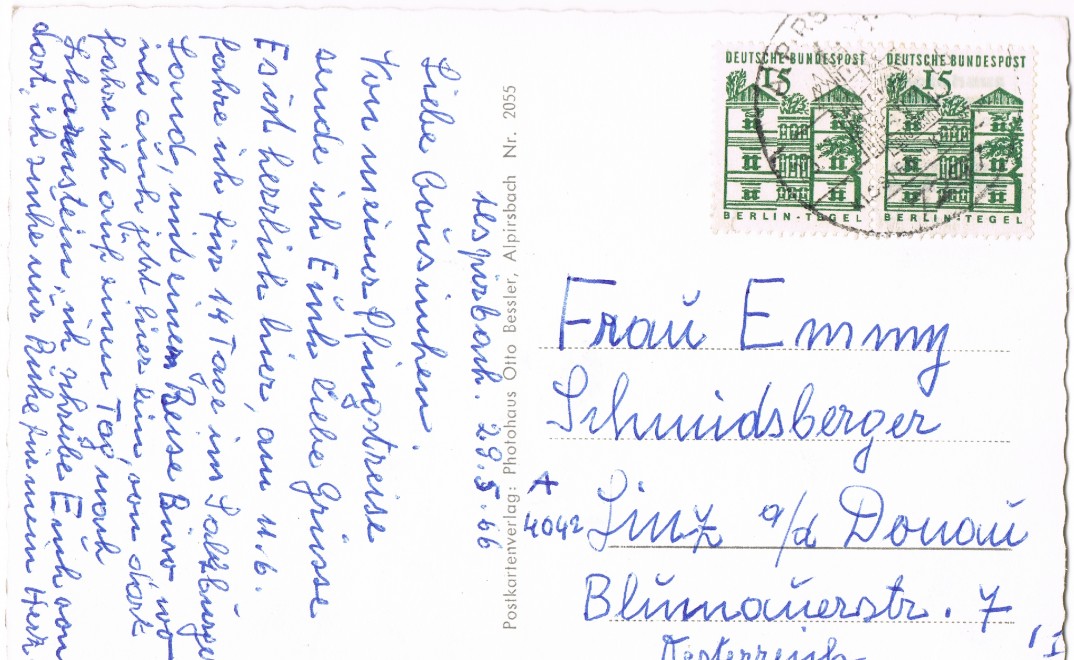 Alpirsbach. 29.5.66
Liebe Cousinchen.
Von meiner Pfingstreise
sende ich Euch liebe Grüsse
Es ist herrlich hier, am 11.6.
fahre ich für 14 Tage ins Salzburger
Land, mit einem Reise Büro wo
ich auch jetzt hier bin, von dort
fahre ich auf einen Tag nach
dort, ich suche nur Ruhe für mein Herz
Postkartenverlag: Photohaus Otto Bessler, Alpirsbach Nr. 2055
DEUTSCHE BUNDESPOST
15
BERLIN-TEGEL
DEUTSCHE BUNDESPOST
15
BERLIN-TEGEL
Frau Emmy
Schmidsberger
A
4042 Linz a/d Donau
Blümauerstr. 7
Oesterreich